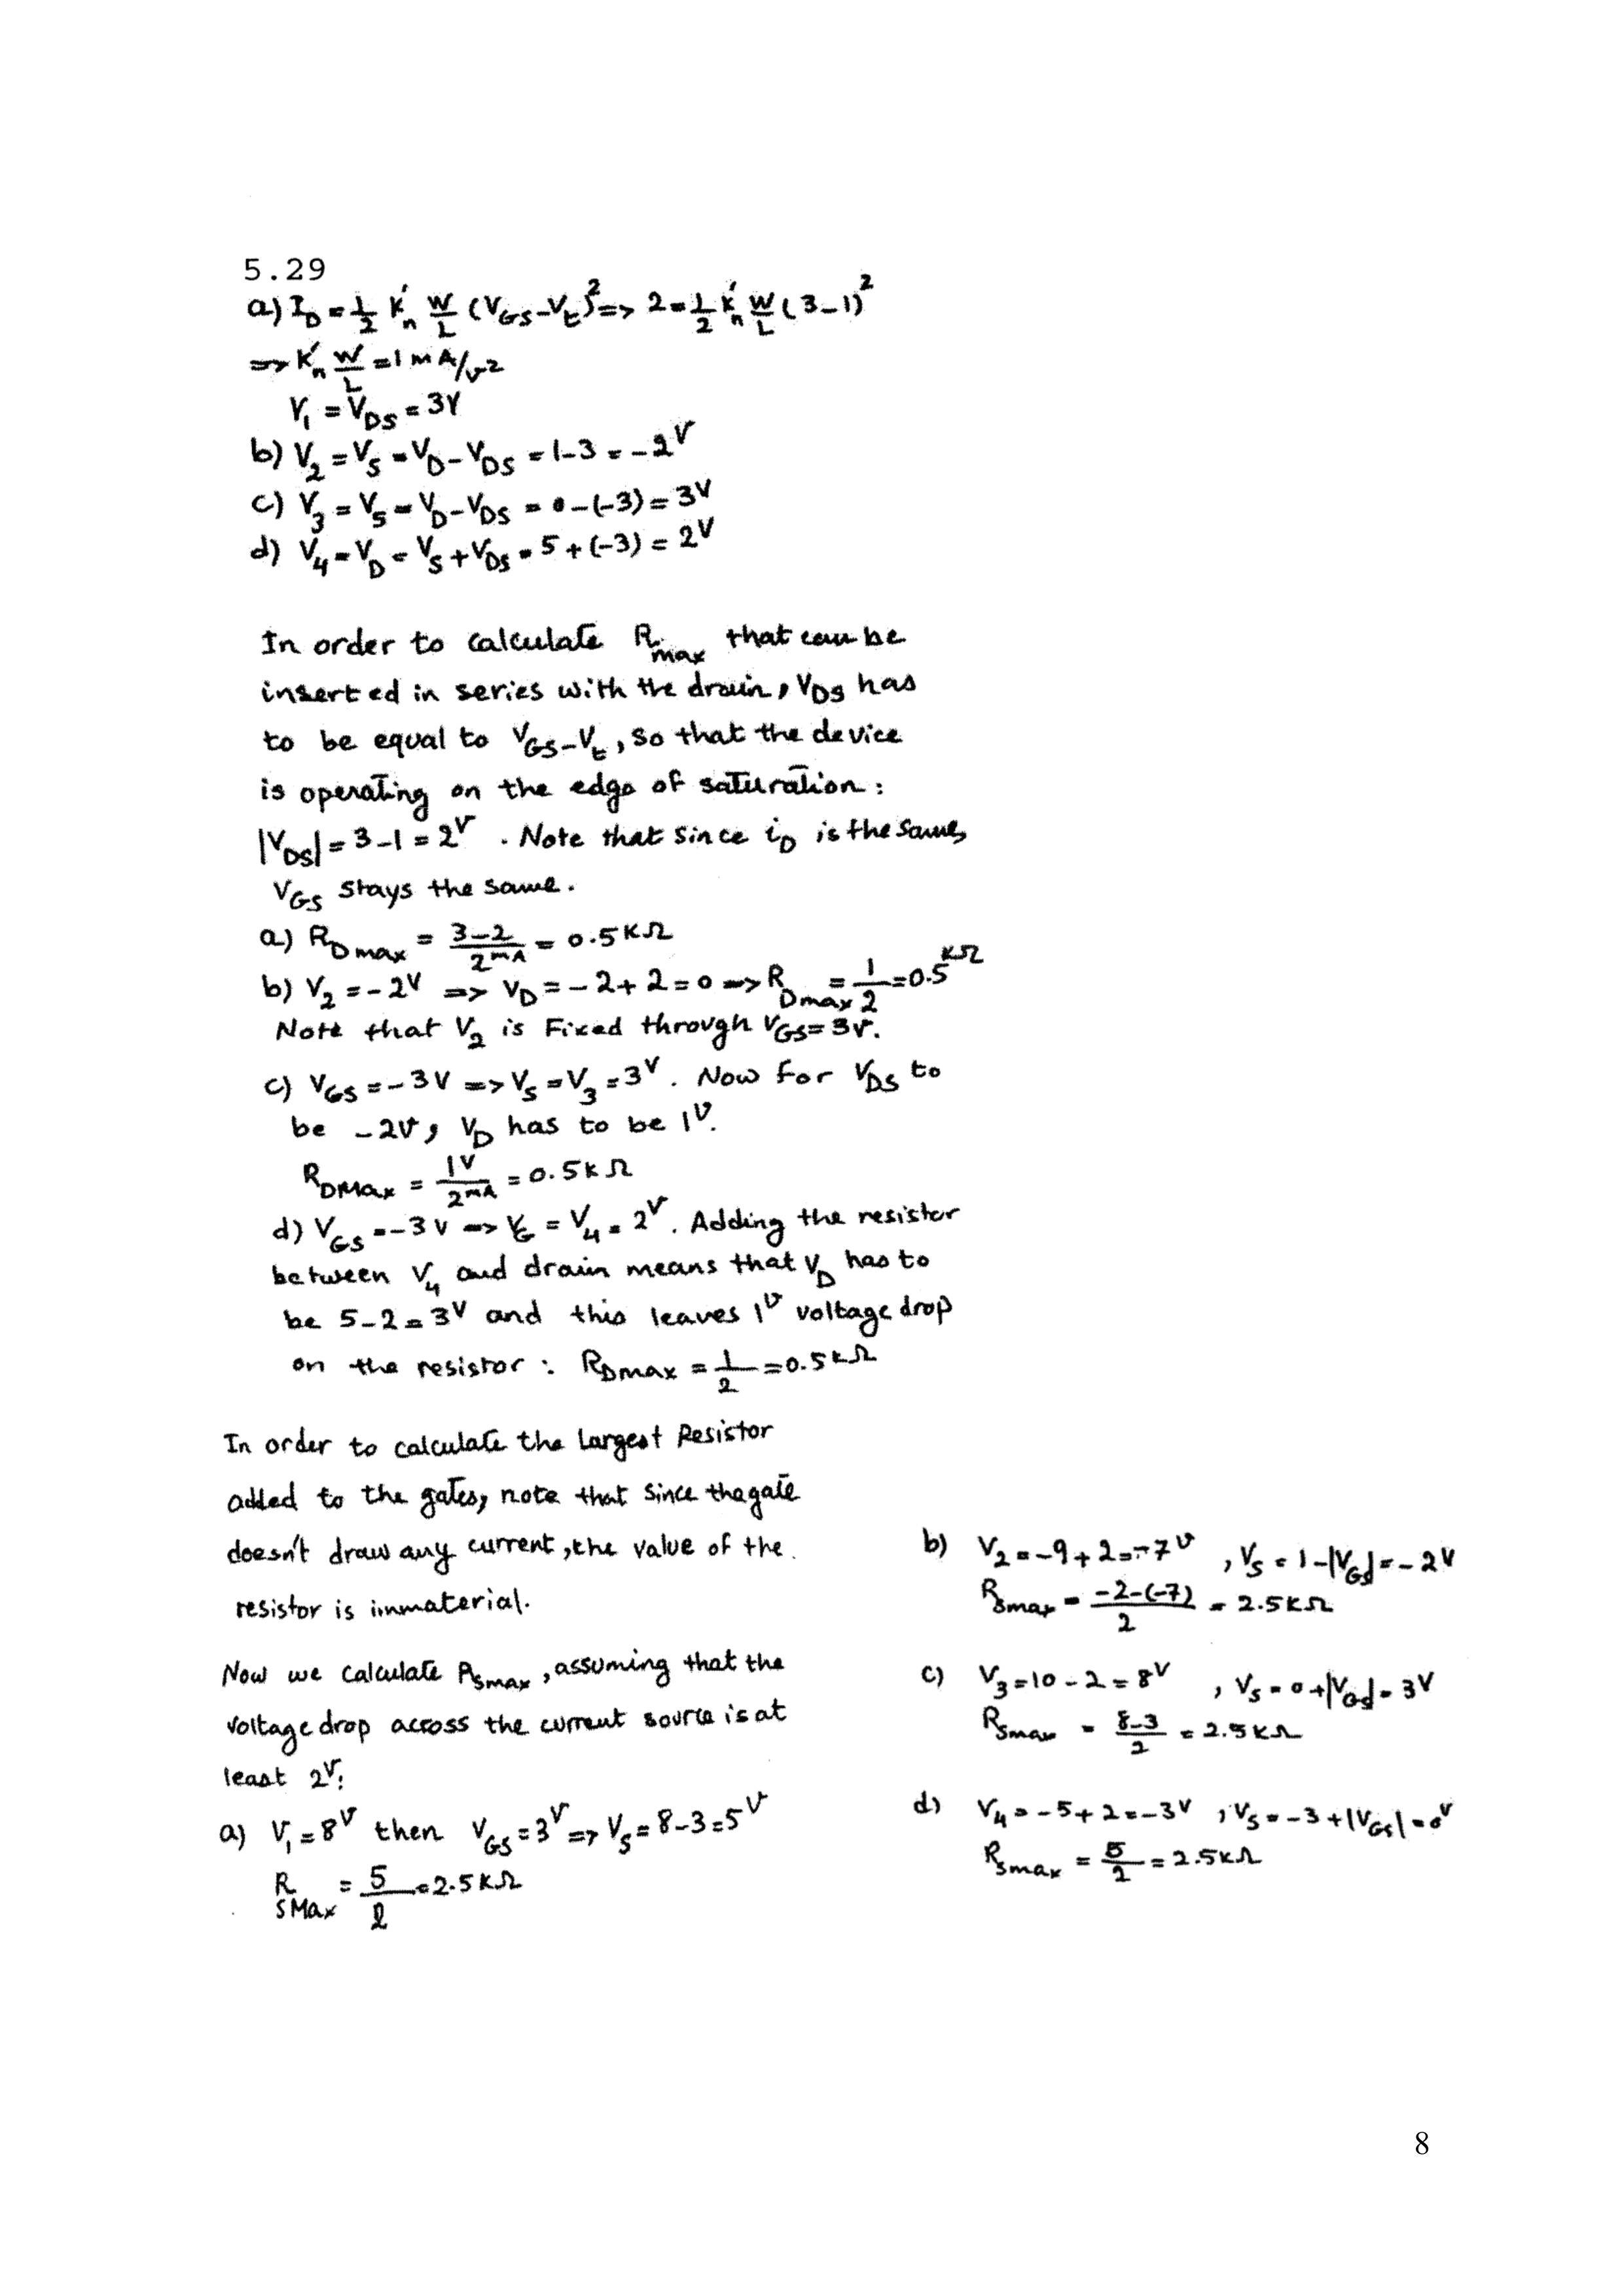 5.29
a) I_D = 1/2 K'_n W/L (V_GS - V_t)^2 => 2 = 1/2 K'_n W/L (3-1)^2
=> K'_n W/L = 1 mA/V^2
V_1 = V_DS = 3V
b) V_2 = V_S = V_D - V_DS = 1-3 = -2^V
c) V_3 = V_S = V_D - V_DS = 0-(-3) = 3^V
d) V_4 = V_D = V_S + V_DS = 5+(-3) = 2^V
In order to calculate R_max that can be
inserted in series with the drain, V_DS has
to be equal to V_GS - V_t, so that the device
is operating on the edge of saturation:
|V_DS| = 3-1 = 2^V. Note that since i_D is the same,
V_GS stays the same.
a) R_Dmax = (3-2)/2mA = 0.5 KΩ
b) V_2 = -2V => V_D = -2+2 = 0 => R_Dmax = 1/2 = 0.5 KΩ
Note that V_2 is Fixed through V_GS = 3V.
c) V_GS = -3V => V_S = V_3 = 3^V. Now for V_DS to
be -2V, V_D has to be 1^V.
R_DMax = 1V/2mA = 0.5 kΩ
d) V_GS = -3V => V_G = V_4 = 2^V. Adding the resistor
between V_4 and drain means that V_D has to
be 5-2 = 3^V and this leaves 1^V voltage drop
on the resistor: R_Dmax = 1/2 = 0.5 kΩ
In order to calculate the Largest Resistor
added to the gates, note that since the gate
doesn't draw any current, the value of the
resistor is immaterial.
Now we calculate R_Smax, assuming that the
voltage drop across the current source is at
least 2^V:
a) V_1 = 8^V then V_GS = 3^V => V_S = 8-3 = 5^V
R_SMax = 5/2 = 2.5 KΩ
b) V_2 = -9+2 = -7^V, V_S = 1-|V_GS| = -2^V
R_Smax = (-2-(-7))/2 = 2.5 KΩ
c) V_3 = 10-2 = 8^V, V_S = 0+|V_GS| = 3^V
R_Smax = (8-3)/2 = 2.5 KΩ
d) V_4 = -5+2 = -3^V, V_S = -3+|V_GS| = 0^V
R_Smax = 5/2 = 2.5 KΩ
8